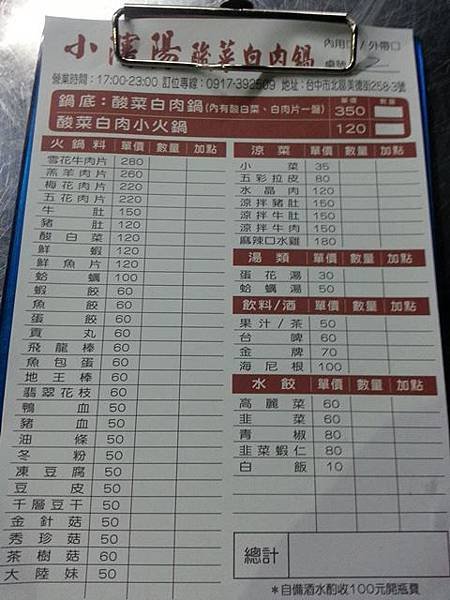 小瀋陽 酸菜白肉鍋
內用口/外帶口
桌號
營業時間：17:00-23:00 訂位專線：0917-392509 地址：台中市北區美德街258-3號
鍋底：酸菜白肉鍋(內有酸白菜、白肉片一盤) 單價 350 數量
酸菜白肉小火鍋 120
火鍋料 單價 數量 加點
雪花牛肉片 280
羔羊肉片 260
梅花肉片 220
五花肉片 220
牛肚 150
豬肚 120
酸白菜 120
鮮蝦 120
鮮魚片 120
蛤蠣 100
蝦餃 60
魚餃 60
蛋餃 60
貢丸 60
飛龍棒 60
魚包蛋 60
地王棒 60
翡翠花枝 60
鴨血 50
豬血 50
油條 50
冬粉 50
凍豆腐 50
豆皮 50
千層豆干 50
金針菇 50
秀珍菇 50
茶樹菇 60
大陸妹 50
涼菜 單價 數量 加點
小菜 35
五彩拉皮 80
水晶肉 120
涼拌豬肚 150
涼拌牛肚 150
涼拌牛肉 150
麻辣口水雞 180
湯類 單價 數量 加點
蛋花湯 30
蛤蠣湯 50
飲料/酒 單價 數量 加點
果汁/茶 50
台啤 60
金牌 70
海尼根 100
水餃 單價 數量 加點
高麗菜 60
韭菜 60
青椒 80
韭菜蝦仁 80
白飯 10
總計
＊自備酒水酌收100元開瓶費